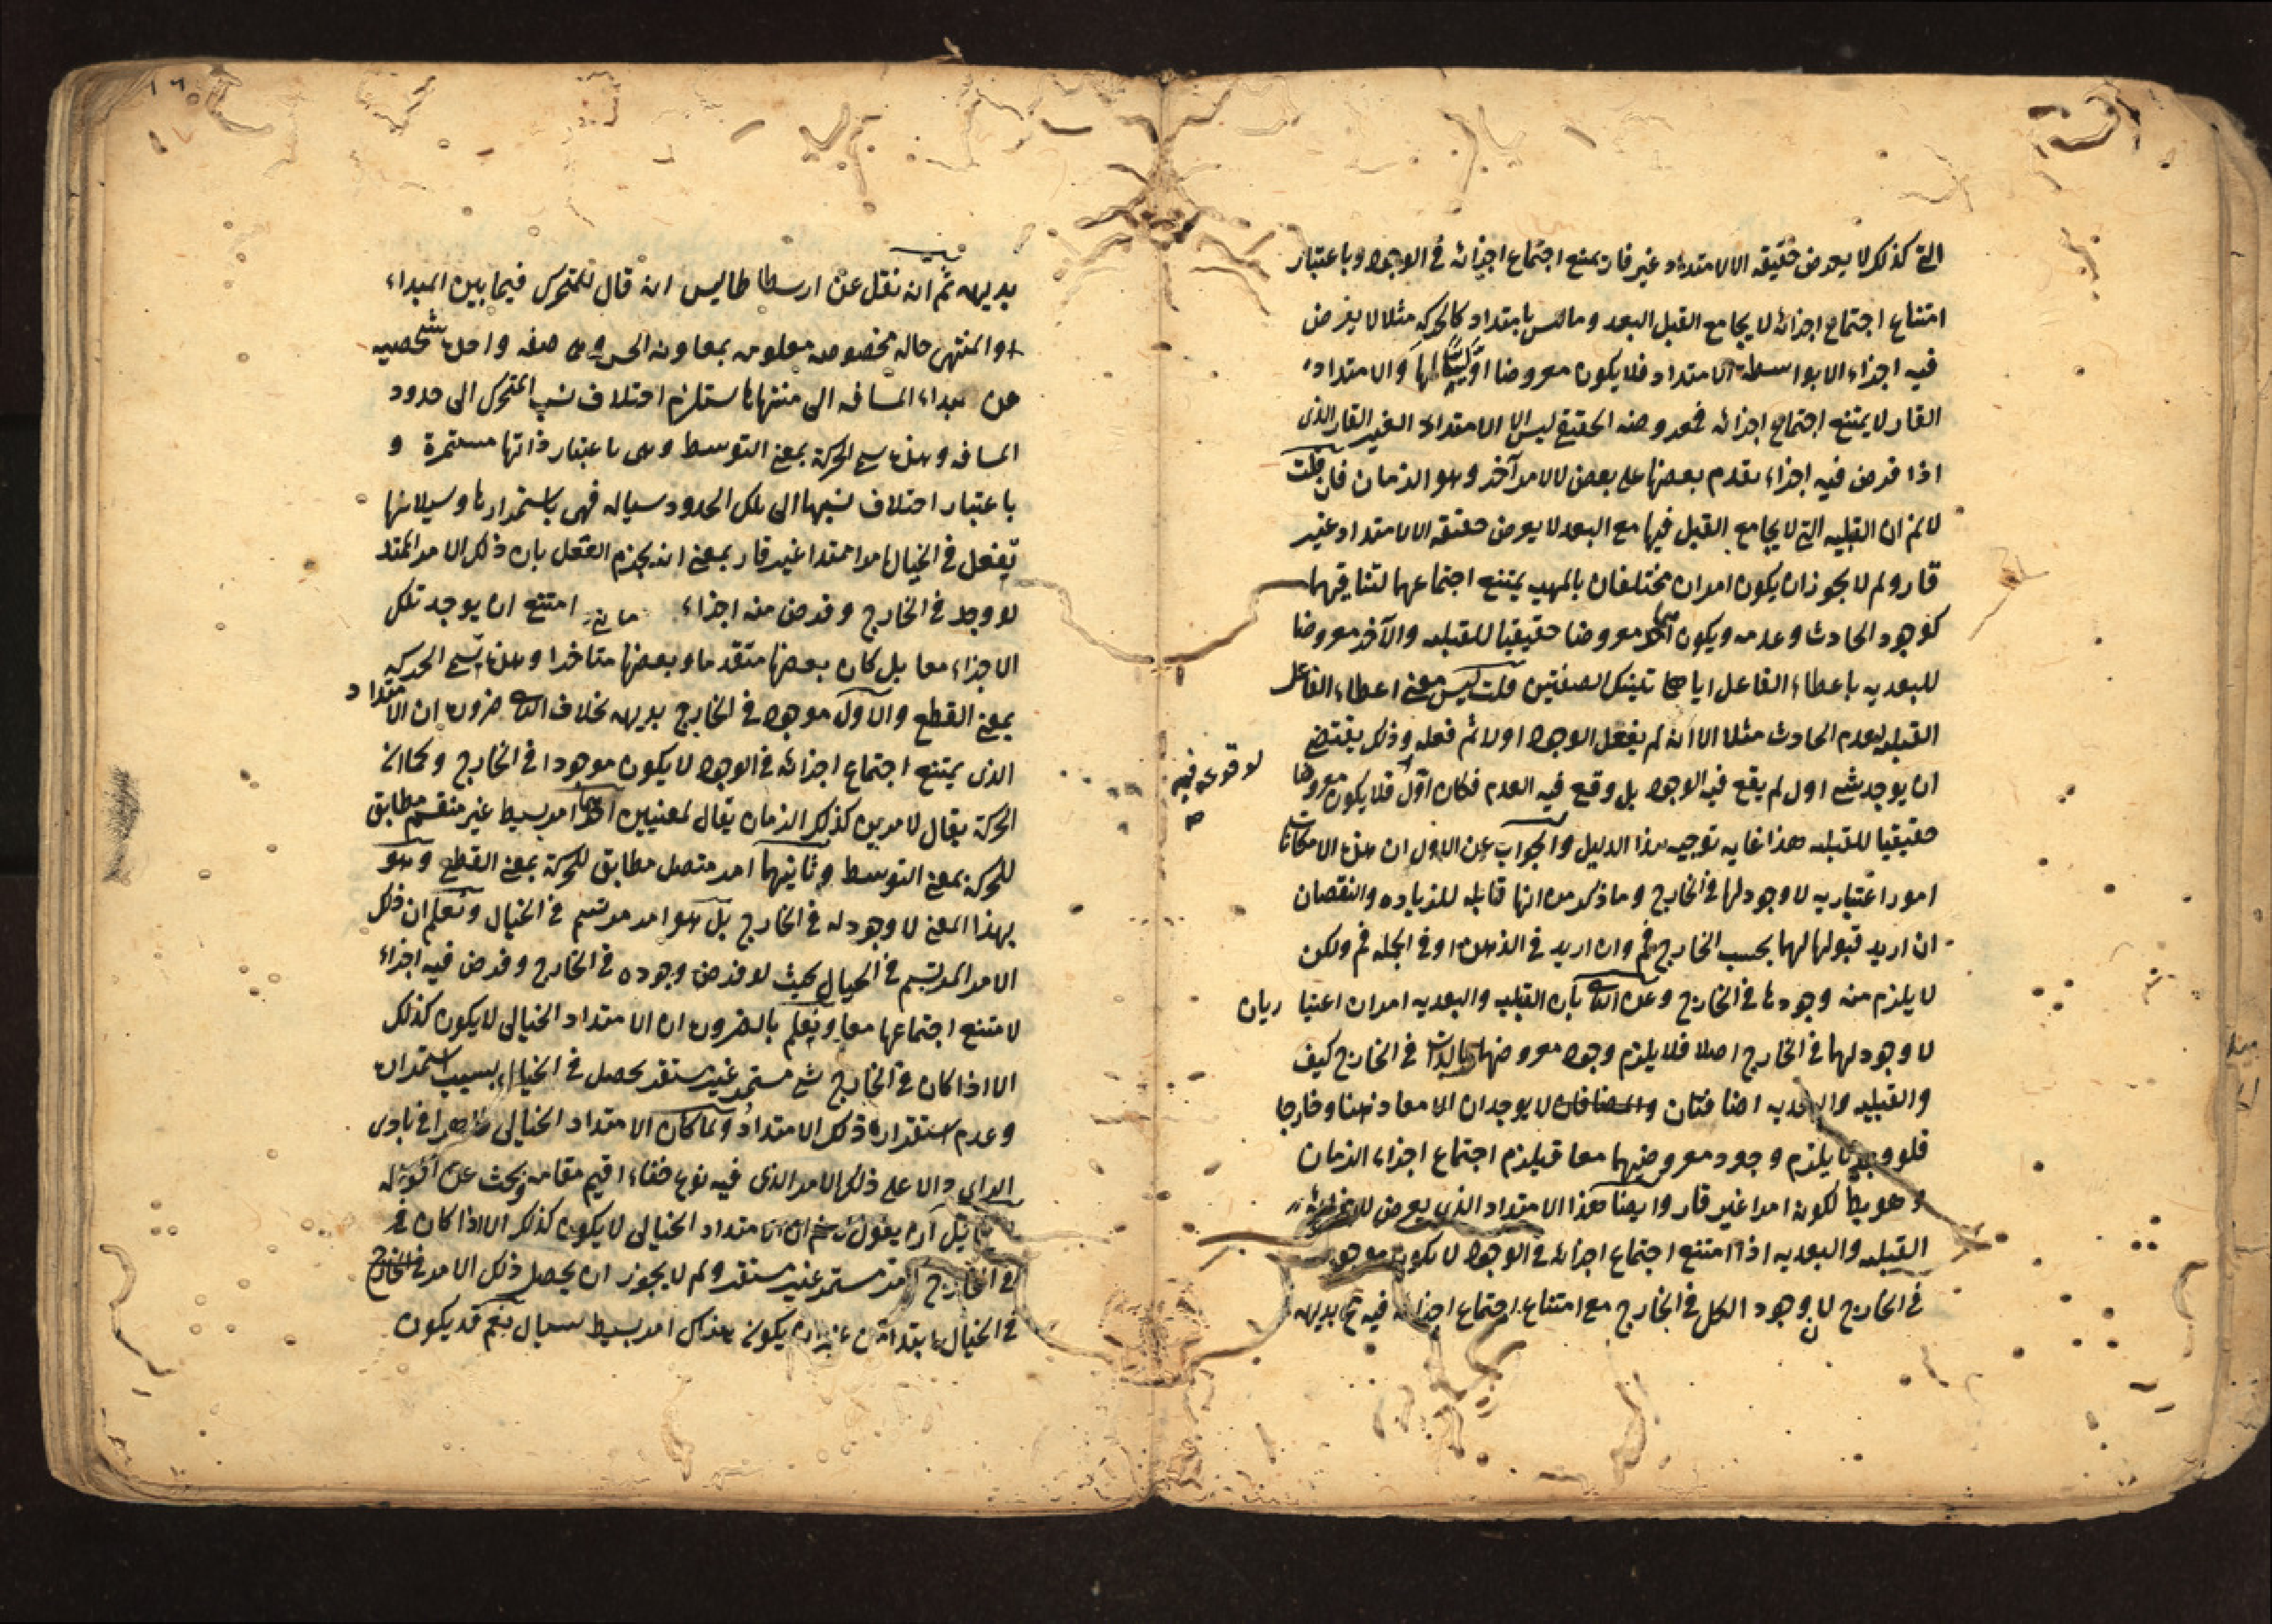 التى كذلك لا يعرض حقيقه الا لامتداد غير قار يمتنع اجتماع اجزائه فى الوجود وباعتبار
امتناع اجتماع اجزائه لا يجامع القبل البعد وما ليس بامتداد كالحركه مثلا لا يفرض
فيه اجزاء الا بواسطة الامتداد فلا يكون معروضا اوليا لها والامتداد
القار لا يمتنع اجتماع اجزائه فمعروضه الحقيقى ليس الا الامتداد الغير القار الذى
اذا فرض فيه اجزاء تقدم بعضها على بعض لا لامر آخر وهو الزمان فان قلت
لا نم ان القبليه التى لا يجامع القبل فيها مع البعد لا يعرض حقيقه الا لامتداد غير
قار ولم لا يجوز ان يكون امران مختلفان بالمهيه يمتنع اجتماعهما لتنافيهما
كوجود الحادث وعدمه ويكون احدهما معروضا حقيقيا للقبليه والآخر معروضا
للبعديه باعطاء الفاعل اياهما تلينك الصفتين قلت ليس معنى اعطاء الفاعل
القبليه لعدم الحادث مثلا الا انه لم يفعل الوجود اولا ثم فعله وذلك يقتضى
ان يوجد شئ اول لم يقع فيه الوجود بل وقع فيه العدم فكان اول فلا يكون معروضا
لوقوعه فيه
صح
حقيقيا للقبليه هذا غايه توجيه هذا الدليل والجواب عن الاول ان هذه الامكانات
امور اعتباريه لا وجود لها فى الخارج وما ذكر من انها قابله للزياده والنقصان
ان اريد قبولها لهما بحسب الخارج فم وان اريد فى الذهن او فى الجمله فم ولكن
لا يلزم منه وجودها فى الخارج وعن الثانى بان القبليه والبعديه امران اعتبا ريان
لا وجود لهما فى الخارج اصلا فلا يلزم وجود معروضهما بالذات فى الخارج كيف
والقبليه والبعديه اضافتان والمضافان لا يوجدان الا معا ذهنا وخارجا
فلو وجدتا يلزم وجود معروضيهما معا فيلزم اجتماع اجزاء الزمان
وهو بط لكونه امرا غير قار وايضا هذا الامتداد الذى يعرض لاجزائه
القبليه والبعديه اذا امتنع اجتماع اجزائه فى الوجود لا يكون موجودا
فى الخارج لان وجود الكل فى الخارج مع امتناع اجتماع اجزائه فيه مح بديهه
بديهه ثم انه نقل عن ارسطاطاليس انه قال للمتحرك فيما بين المبداء
والمنتهى حاله مخصوصه معلومه بمعاونه الحس وهى صفه واحده شخصيه
من مبداء المسافه الى منتهاها ستلزم اختلاف نسب المتحرك الى حدود
المسافه وهذه تسمى الحركة بمعنى التوسط وهى باعتبار ذاتها مستمرة و
باعتبار اختلاف نسبها الى تلك الحدود سياله فهى باستمرارها وسيلانها
تفعل فى الخيال امرا ممتدا غير قار بمعنى انه يجزم العقل بان ذلك الامر الممتد
لو وجد فى الخارج وفرض منه اجزاء امتنع ان يوجد تلك
الاجزاء معا بل كان بعضها متقدما وبعضها متاخرا وهذه تسمى الحركه
بمعنى القطع والاول موجود فى الخارج بديهه بخلاف الثانى ضروره ان الامتداد
الذى يمتنع اجتماع اجزائه فى الوجود لا يكون موجودا فى الخارج وكما ان
الحركة يقال لامرين كذلك الزمان يقال لمعنيين احدهما امر بسيط غير منقسم مطابق
للحركة بمعنى التوسط وثانيهما امر متصل مطابق للحركة بمعنى القطع وهو
بهذا المعنى لا وجود له فى الخارج بل هو امر مرتسم فى الخيال ونعلم ان ذلك
الامر المرتسم فى الخيال بحيث لو فرض وجوده فى الخارج وفرض فيه اجزاء
لامتنع اجتماعها معا ونعلم بالضروره ان الامتداد الخيالى لا يكون كذلك
الا اذا كان فى الخارج شئ مستمر غير مستقر يحصل فى الخيال بسبب استمراره
وعدم استقراره ذلك الامتداد ولما كان الامتداد الخيالى ظاهرا فى بادى
الراى دالا على ذلك الامر الذى فيه نوع خفاء اقيم مقامه وبحث عن
ان يقول ان الامتداد الخيالى لا يكون كذلك الا اذا كان فى
فى الخارج امر مستمر غير مستقر ولم لا يجوز ان يحصل ذلك الامر فى الخارج
فى الخيال ابتداء من غير ان يكون هناك امر بسيط سيال نعم قد يكون